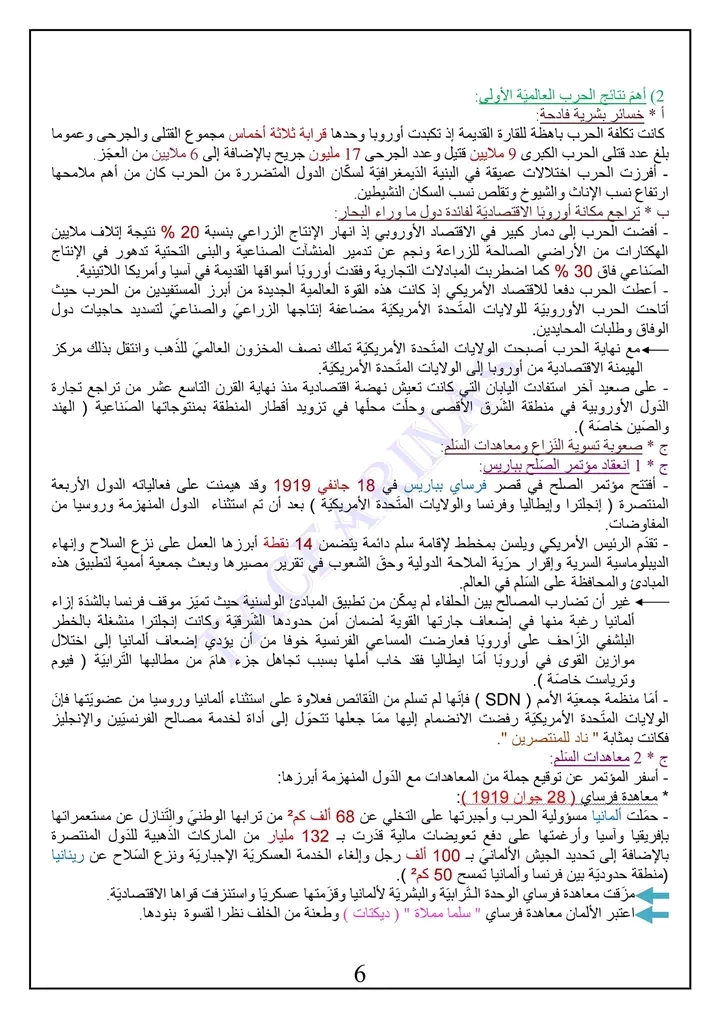 2) أهمّ نتائج الحرب العالميّة الأولى:
أ * خسائر بشرية فادحة:
كانت تكلفة الحرب باهظة للقارة القديمة إذ تكبدت أوروبا وحدها قرابة ثلاثة أخماس مجموع القتلى والجرحى وعموما
بلغ عدد قتلى الحرب الكبرى 9 ملايين قتيل وعدد الجرحى 17 مليون جريح بالإضافة إلى 6 ملايين من العجّز.
- أفرزت الحرب اختلالات عميقة في البنية الدّيمغرافيّة لسكّان الدول المتضررة من الحرب كان من أهم ملامحها
ارتفاع نسب الإناث والشيوخ وتقلص نسب السكان النشيطين.
ب * تراجع مكانة أوروبّا الاقتصاديّة لفائدة دول ما وراء البحار:
- أفضت الحرب إلى دمار كبير في الاقتصاد الأوروبي إذ انهار الإنتاج الزراعي بنسبة 20 % نتيجة إتلاف ملايين
الهكتارات من الأراضي الصالحة للزراعة ونجم عن تدمير المنشآت الصناعية والبنى التحتية تدهور في الإنتاج
الصّناعي فاق 30 % كما اضطربت المبادلات التجارية وفقدت أوروبّا أسواقها القديمة في آسيا وأمريكا اللاتينية.
- أعطت الحرب دفعا للاقتصاد الأمريكي إذ كانت هذه القوة العالمية الجديدة من أبرز المستفيدين من الحرب حيث
أتاحت الحرب الأوروبيّة للولايات المتّحدة الأمريكيّة مضاعفة إنتاجها الزراعيّ والصناعيّ لتسديد حاجيات دول
الوفاق وطلبات المحايدين.
مع نهاية الحرب أصبحت الولايات المتّحدة الأمريكيّة تملك نصف المخزون العالميّ للذّهب وانتقل بذلك مركز
الهيمنة الاقتصادية من أوروبا إلى الولايات المتّحدة الأمريكيّة.
- على صعيد آخر استفادت اليابان التي كانت تعيش نهضة اقتصادية منذ نهاية القرن التاسع عشر من تراجع تجارة
الدّول الأوروبية في منطقة الشّرق الأقصى وحلّت محلّها في تزويد أقطار المنطقة بمنتوجاتها الصّناعية ( الهند
والصّين خاصّة ).
ج * صعوبة تسوية النّزاع ومعاهدات السّلم:
ج * 1 انعقاد مؤتمر الصّلح بباريس:
- أفتتح مؤتمر الصلح في قصر فرساي بباريس في 18 جانفي 1919 وقد هيمنت على فعالياته الدول الأربعة
المنتصرة ( إنجلترا وإيطاليا وفرنسا والولايات المتّحدة الأمريكيّة ) بعد أن تم استثناء الدول المنهزمة وروسيا من
المفاوضات.
- تقدّم الرئيس الأمريكي ويلسن بمخطط لإقامة سلم دائمة يتضمن 14 نقطة أبرزها العمل على نزع السلاح وإنهاء
الديبلوماسية السرية وإقرار حرّية الملاحة الدولية وحقّ الشعوب في تقرير مصيرها وبعث جمعية أممية لتطبيق هذه
المبادئ والمحافظة على السّلم في العالم.
غير أن تضارب المصالح بين الحلفاء لم يمكّن من تطبيق المبادئ الولسنية حيث تميّز موقف فرنسا بالشدّة إزاء
ألمانيا رغبة منها في إضعاف جارتها القوية لضمان أمن حدودها الشّرقيّة وكانت إنجلترا منشغلة بالخطر
البلشفي الزّاحف على أوروبّا فعارضت المساعي الفرنسية خوفا من أن يؤدي إضعاف ألمانيا إلى اختلال
موازين القوى في أوروبّا أمّا ايطاليا فقد خاب أملها بسبب تجاهل جزء هامّ من مطالبها التّرابيّة ( فيوم
وترياست خاصّة ).
- أمّا منظمة جمعيّة الأمم ( SDN ) فإنّها لم تسلم من النّقائص فعلاوة على استثناء ألمانيا وروسيا من عضويّتها فإنّ
الولايات المتّحدة الأمريكيّة رفضت الانضمام إليها ممّا جعلها تتحوّل إلى أداة لخدمة مصالح الفرنسيّين والإنجليز
فكانت بمثابة " ناد للمنتصرين ".
ج * 2 معاهدات السّلم:
- أسفر المؤتمر عن توقيع جملة من المعاهدات مع الدّول المنهزمة أبرزها:
* معاهدة فرساي ( 28 جوان 1919 ):
- حمّلت ألمانيا مسؤولية الحرب وأجبرتها على التخلي عن 68 ألف كم² من ترابها الوطنيّ والتّنازل عن مستعمراتها
بإفريقيا وآسيا وأرغمتها على دفع تعويضات مالية قدّرت بـ 132 مليار من الماركات الذّهبية للدّول المنتصرة
بالإضافة إلى تحديد الجيش الألمانيّ بـ 100 ألف رجل وإلغاء الخدمة العسكريّة الإجباريّة ونزع السّلاح عن رينانيا
(منطقة حدوديّة بين فرنسا وألمانيا تمسح 50 كم² ).
مزّقت معاهدة فرساي الوحدة التّرابيّة والبشريّة لألمانيا وقزّمتها عسكريّا واستنزفت قواها الاقتصاديّة.
اعتبر الألمان معاهدة فرساي " سلما مملاة " ( ديكتات ) وطعنة من الخلف نظرا لقسوة بنودها.
6